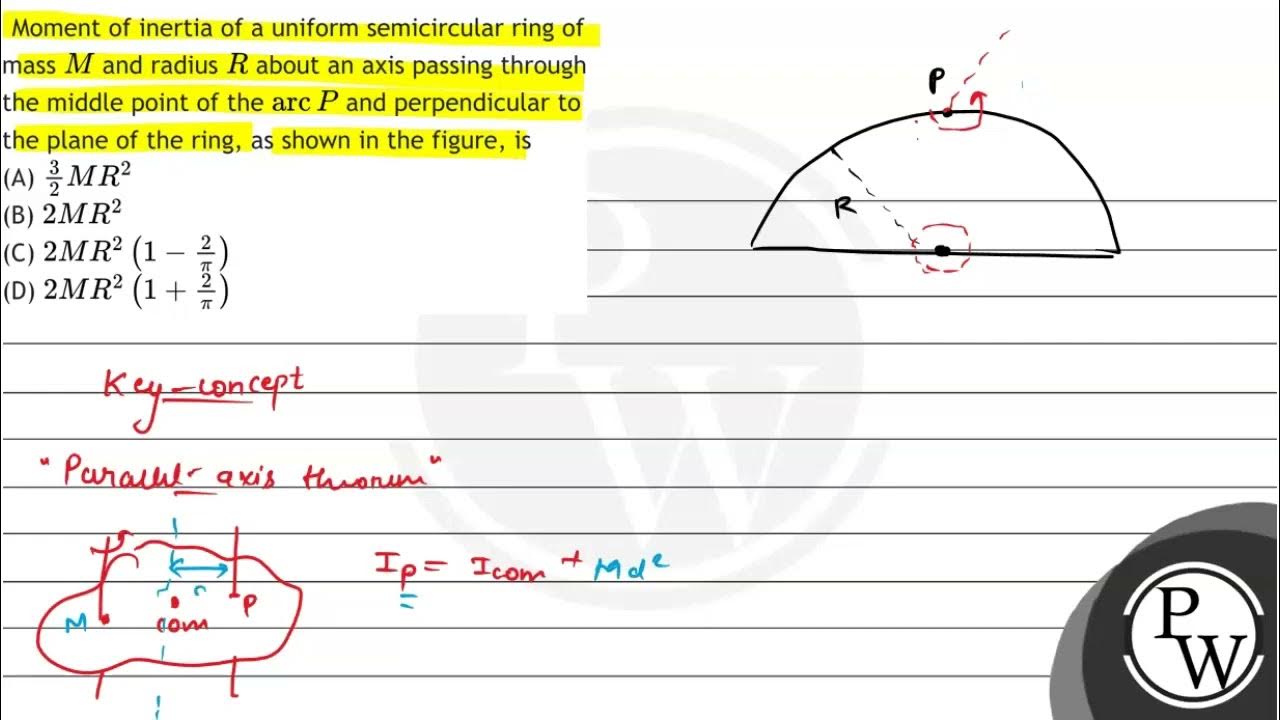 Moment of inertia of a uniform semicircular ring of
mass M and radius R about an axis passing through
the middle point of the arc P and perpendicular to
the plane of the ring, as shown in the figure, is
(A) 3/2 MR²
(B) 2MR²
(C) 2MR² (1 − 2/π)
(D) 2MR² (1 + 2/π)
P
R
Key-concept
"Parallel-axis theorem"
M
com
P
I_P = I_com + Md²
PW
PW